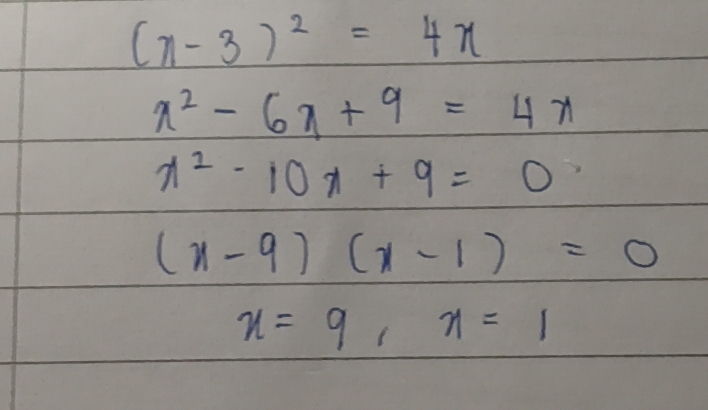 (x - 3)² = 4x
x² - 6x + 9 = 4x
x² - 10x + 9 = 0
(x - 9) (x - 1) = 0
x = 9, x = 1